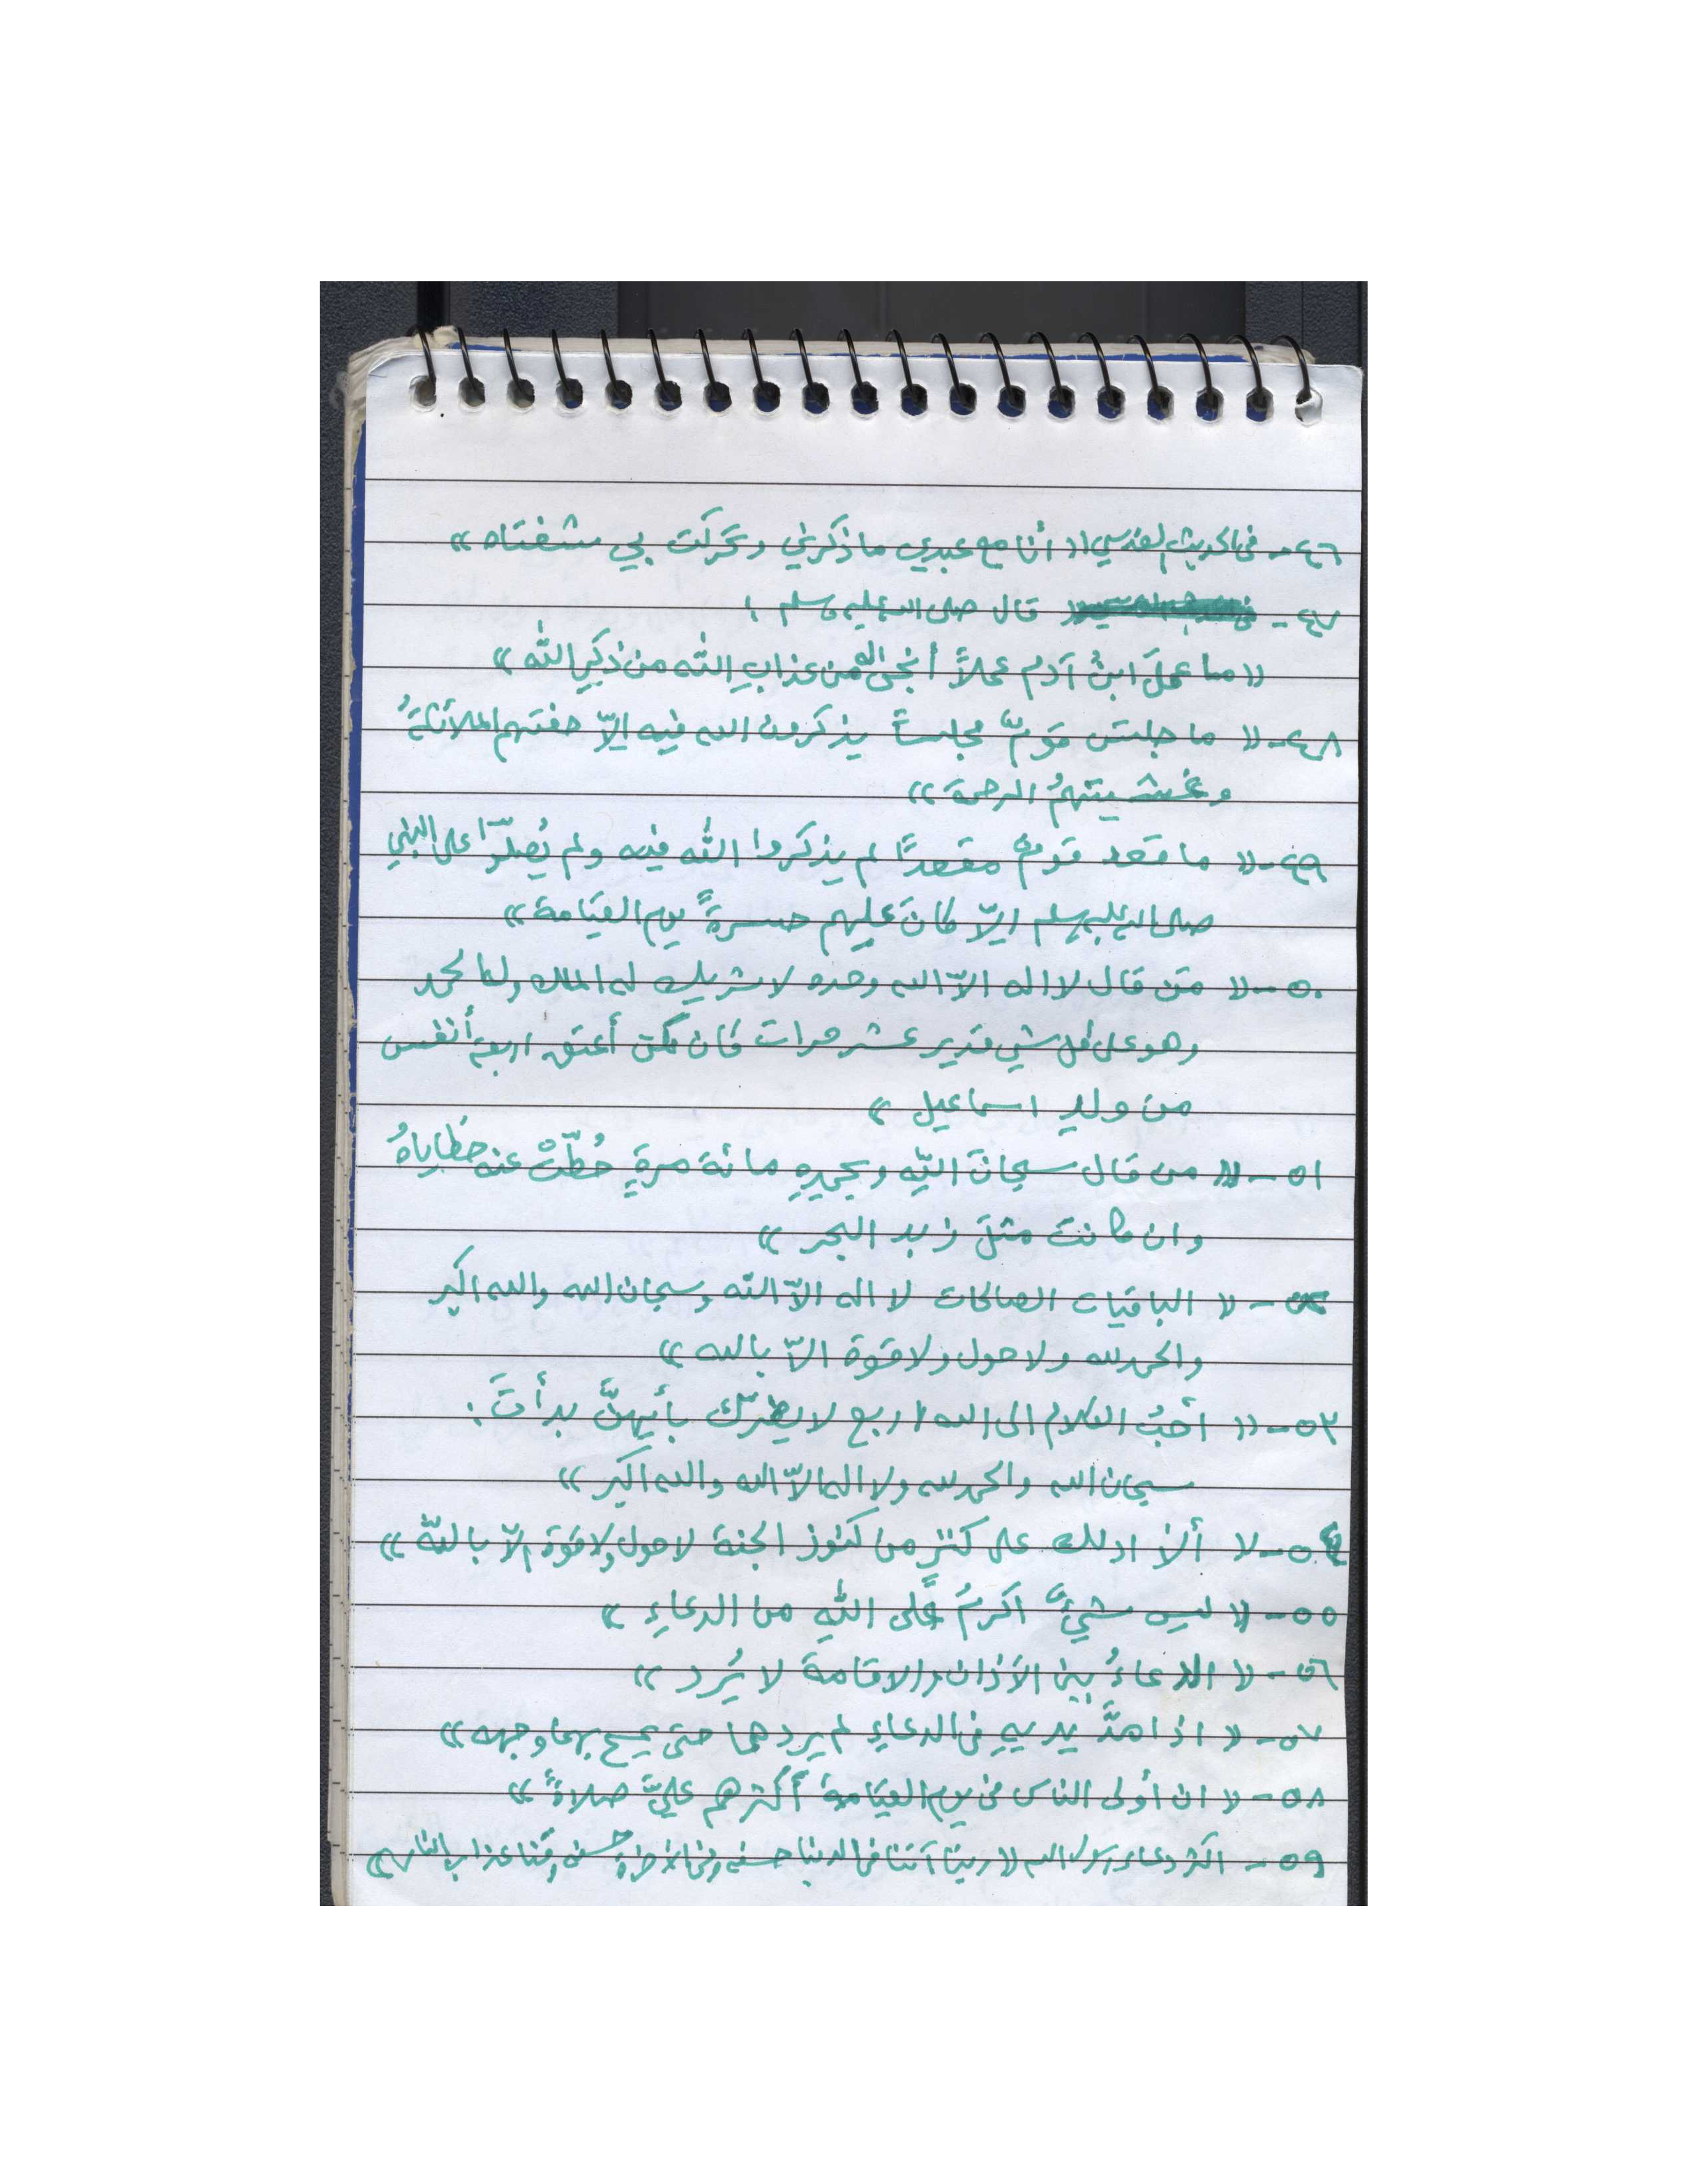 ٤٦- في الحديث القدسي (( أنا مع عبدي ما ذكرني وتحركت بي شفتاه ))
٤٧- قال صلى الله عليه وسلم :
(( ما عملَ ابنُ آدم عملاً أنجى له من عذابِ الله من ذكرِ الله ))
٤٨- (( ما جلس قومٌ مجلساً يذكرون الله فيه إلاّ حفتهم الملائكةُ
وغشيتهمُ الرحمة ))
٤٩- (( ما قعد قومٌ مقعداً لم يذكروا الله فيه ولم يُصلّوا على النبي
صلى الله عليه وسلم إلاّ كانَ عليهم حسرةً يوم القيَامة ))
٥٠- (( مَن قال لا اله الاّ الله وحده لا شريك له الملك وله الحمد
وهو على كل شي قدير عشر مرات كان كمن أعتق اربعة أنفس
من ولدِ اسماعيل ))
٥١- (( من قال سبحانَ اللهِ وبحمدِهِ مائة مرةٍ حُطّتْ عنه خطَاياهُ
وان كانت مثلَ زبد البحر ))
٥٢- (( الباقيات الصالحات لا اله الاّ الله وسبحان الله والله اكبر
والحمدلله ولا حول ولا قوة الاّ بالله ))
٥٣- (( احَبُ الكلام الى الله اربع لا يضرّك بأيهنَّ بدأتَ :
سبحان الله والحمدلله ولا اله الاّ الله والله اكبر ))
٥٤- (( ألا ادلك على كنزٍ من كنوز الجنة لا حول ولا قوة إلاّ بالله ))
٥٥- (( ليس شيءٌ اكرمُ على اللهِ من الدعاءِ ))
٥٦- (( الدعاءُ بين الأذان والاقامة لا يُرد ))
٥٧- (( اذا مدَّ يديهِ في الدعاءِ لم يردهما حتى يمسح بهما وجهه ))
٥٨- (( ان أولى الناس في يوم القيَامة أكثرهم عليَّ صلاةً ))
٥٩- اكثر دعاء رسول الله (( ربنا آتنا في الدنيا حسنه وفي الاخرة حسنه وقنا عذاب النار ))